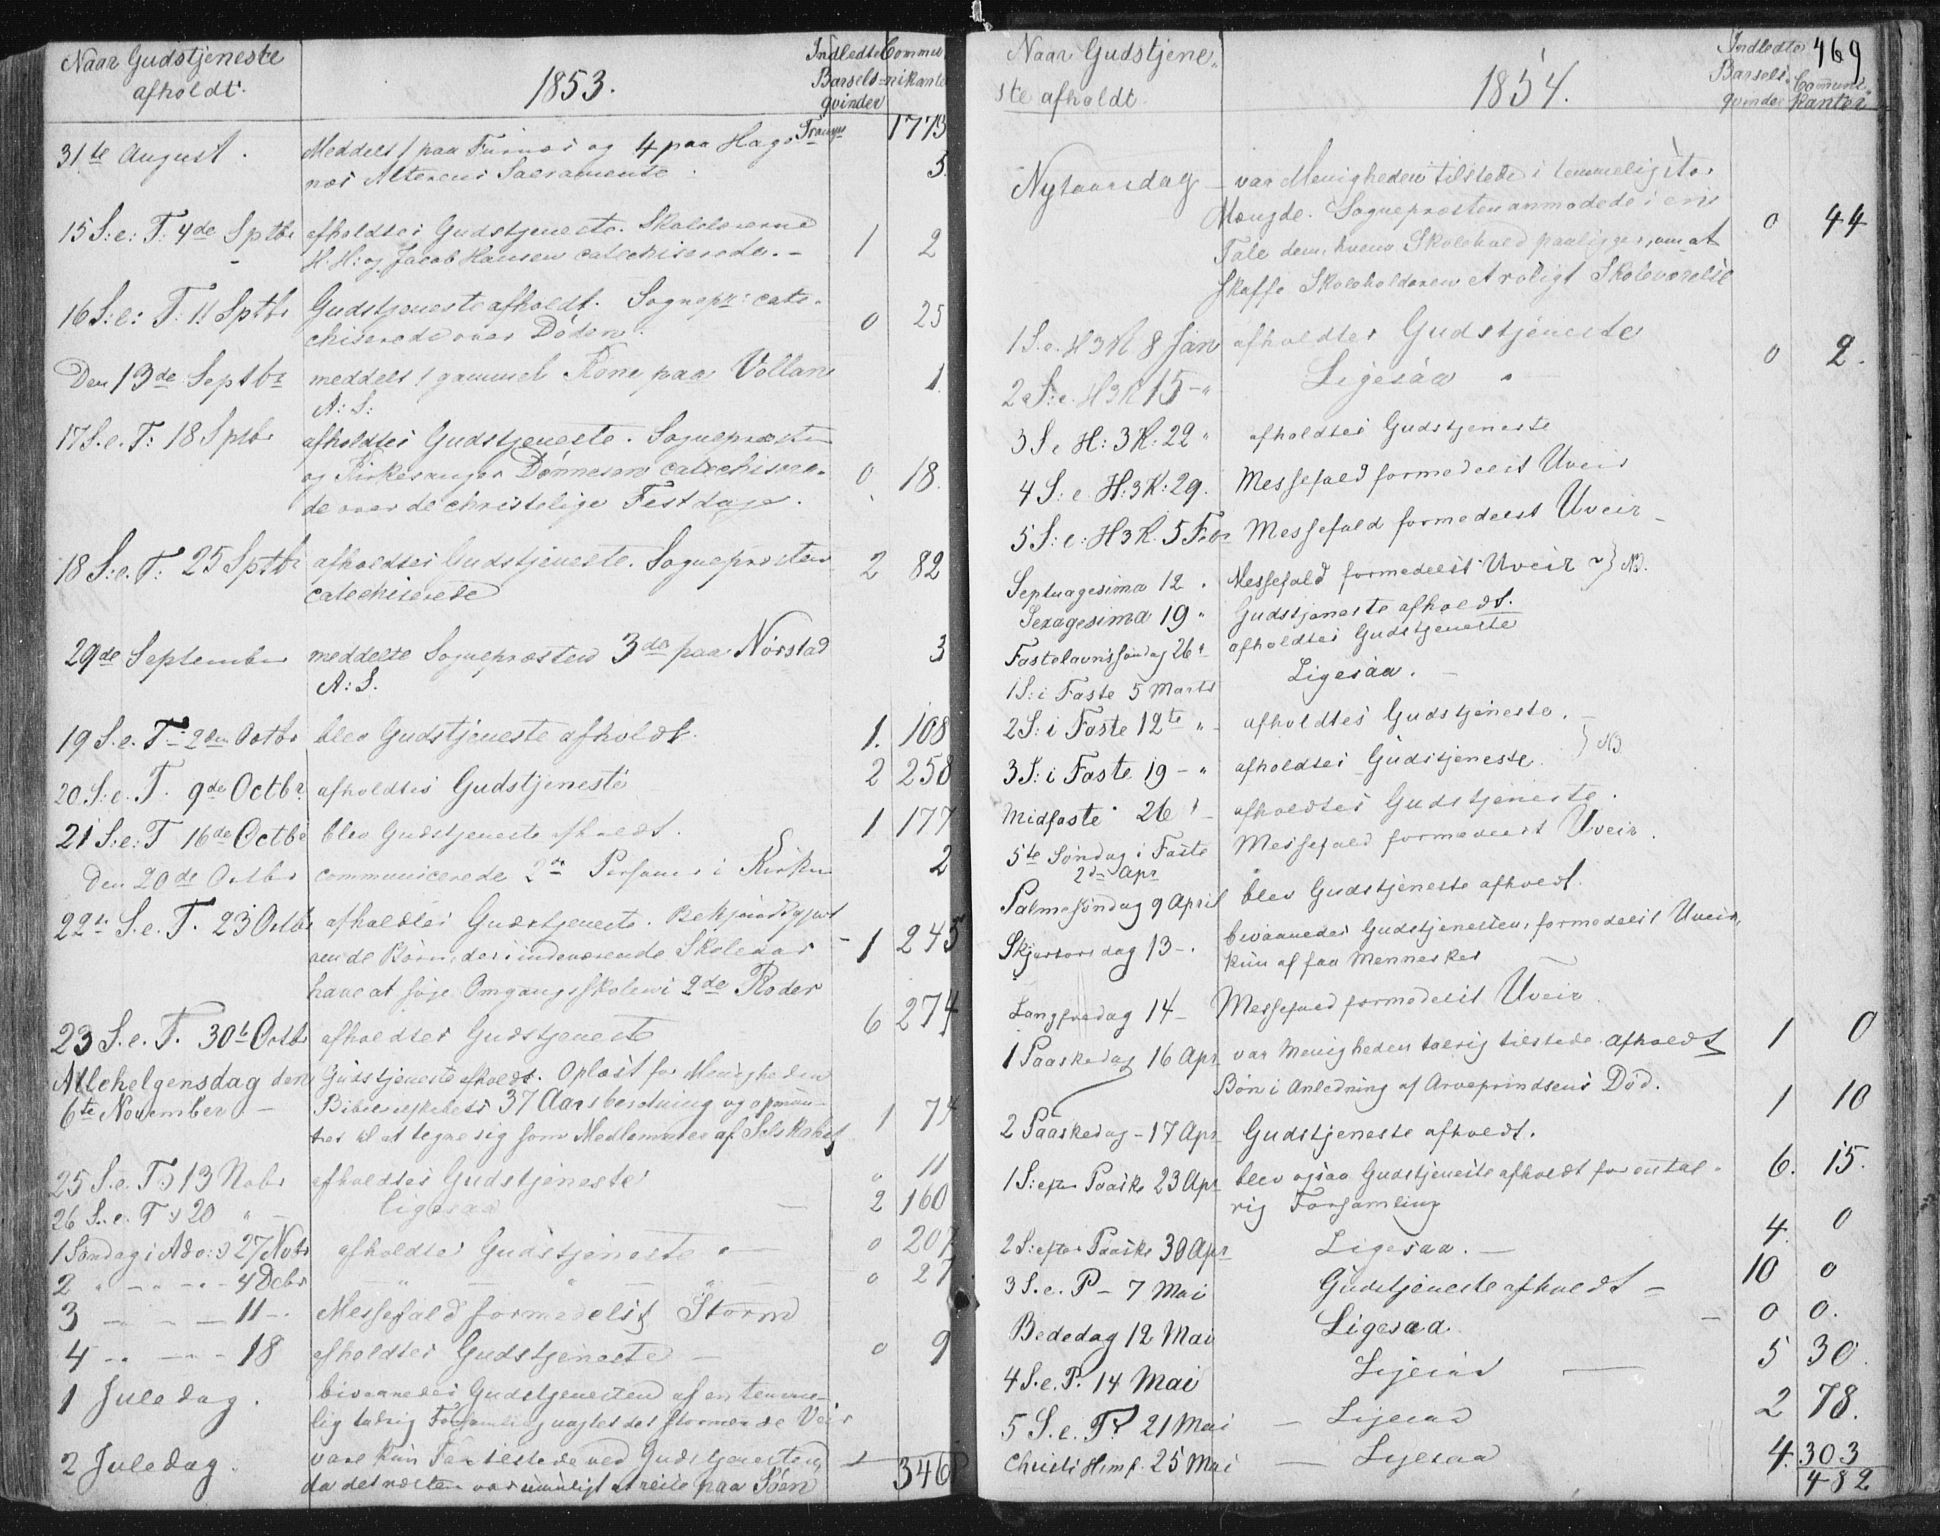 Naar Gudstjeneste
afholdt.
1853.
Indledte Barselqvinder
Communikanter
Transp 1773
31te August. Meddelt 1 paa Furnæs og 4 paa Hagenæs Alterens Sacramente. 5.
15 S: e: T: 4de Sptbr afholdtes Gudstjeneste. Skolelærerne
H. H: og Jacob Hansen catechiserede. - 1 2
16 S: e: T. 11 Sptbr Gudstjeneste afholdt. Sognepr: cate-
chiserede over Døden. 0 25
Den 13de Septbr meddelt 1 gammel Kone paa Vollan 1
A: S:
17 S. e. T: 18 Sptbr afholdtes Gudstjeneste. Sognepræsten
og Kirkesanger Dønnesen catechisere-
de over de christelige Festdage. 0 18.
18 S: e. T: 25 Sptbr afholdtes Gudstjeneste. Sognepræsten 2 82
catechiserede
29de September meddelte Sognepræsten 3de paa Nørstad 3
A: S.
19 S. e. T. 2den Octbr blev Gudstjeneste afholdt. 1. 108
20. S: e. T. 9de Octbr. afholdtes Gudstjeneste 2 258
21 S: e: T 16de Octbr blev Gudstjeneste afholdt. 1 177
Den 20de Octbr communicerede 2de Personer i Kirken 2
22de S. e. T. 23 Octbr afholdtes Gudstjeneste. Bekjendtgjort
de Børn, der i indeværende Skoleaar - 1 245
have at søge Omgangsskolen i 2de Roder
23 S. e. T. 30te Octbr afholdtes Gudstjeneste 6 274
Allehelgensdag den Gudstjeneste afholdt. Oplæst for Menigheden
6te November - Bibelselskabets 37 Aarsberetning og opmun-
tret til at tegne sig som Medlemmer af Selskabet 1 74
25 S. e. T. 13 Nobr afholdtes Gudstjeneste 0 11
26 S. e. T. 20 " - Ligesaa - 2 160
1 Søndag i Adv: 27 Nobr afholdtes Gudstjeneste - 0 207
2 " - " - 4 Debr - " - " - 0 27
3 - - - 11 - Messefald formedelst Storm
4 - - - 18 afholdtes Gudstjeneste - 0 9
1 Juledag. bivaanedes Gudstjenesten af en temme-
lig talrig Forsamling uagtet det stormende Veir
2 Juledag. vare kun Faa tilstede ved Gudstjenesten
da det næsten var umuligt at reise paa Søen
346
Naar Gudstjene-
ste afholdt.
1854.
Indledte Barselqvinder
Communikanter
469
Nytaarsdag - var Menigheden tilstede i temmelig stor
Mængde. Sognepræsten anmodede i en
Tale dem, hvem Skolehold paaligger, om at 0 44
skaffe Skoleholderen et roligt Skoleværelse
1 S. e. H 3 K 8 Jan afholdtes Gudstjeneste 0 2.
2 S: e. H 3 K 15 - " Ligesaa " -
3 S. e H: 3 K: 22 " afholdtes Gudstjeneste
4 S: e. H: 3 K: 29. Messefald formedelst Uveir
5 S: e: H 3 K. 5 Febr Messefald formedelst Uveir -
Septuagesima 12 " Messefald formedelst Uveir } NB.
Sexagesima 19 " Gudstjeneste afholdt.
Fastelavnssøndag 26 " afholdtes Gudstjeneste
1 S: i Faste 5 Marts Ligesaa. -
2 S: i Faste 12te " - afholdtes Gudstjeneste. -
3 S: i Faste 19 - " afholdtes Gudstjeneste. } NB
Midfaste 26 " - afholdtes Gudstjeneste.
5te Søndag i Faste Messefald formedelst Uveir.
2den Apr
Palmesøndag 9 April blev Gudstjeneste afholdt.
Skjærtorsdag 13 -. bivaanedes Gudstjenesten, formedelst Uveir,
kun af faa Mennesker
Langfredag 14 - Messefald formedelst Uveir.
1 Paaskedag 16 Apr var Menigheden talrig tilstede. afholdt 1 0
Bøn i Anledning af Arveprindsens Død.
2 Paaskedag - 17 Apr Gudstjeneste afholdt. 1 10
1 S: efter Paaske 23 Apr blev ogsaa Gudstjeneste afholdt for en tal-
rig Forsamling 6. 15.
2 S: efter Paaske 30 Apr Ligesaa. - 4. 0
3 S. e. P - 7 Mai Gudstjeneste afholdt - 10 0
Bededag 12 Mai Ligesaa - 0 0.
4 S. e. P. 14 Mai Ligesaa - 5 30.
5 S. e. P 21 Mai - Ligesaa 2 78.
Christi Himf. 25 Mai - Ligesaa 4. 303
482